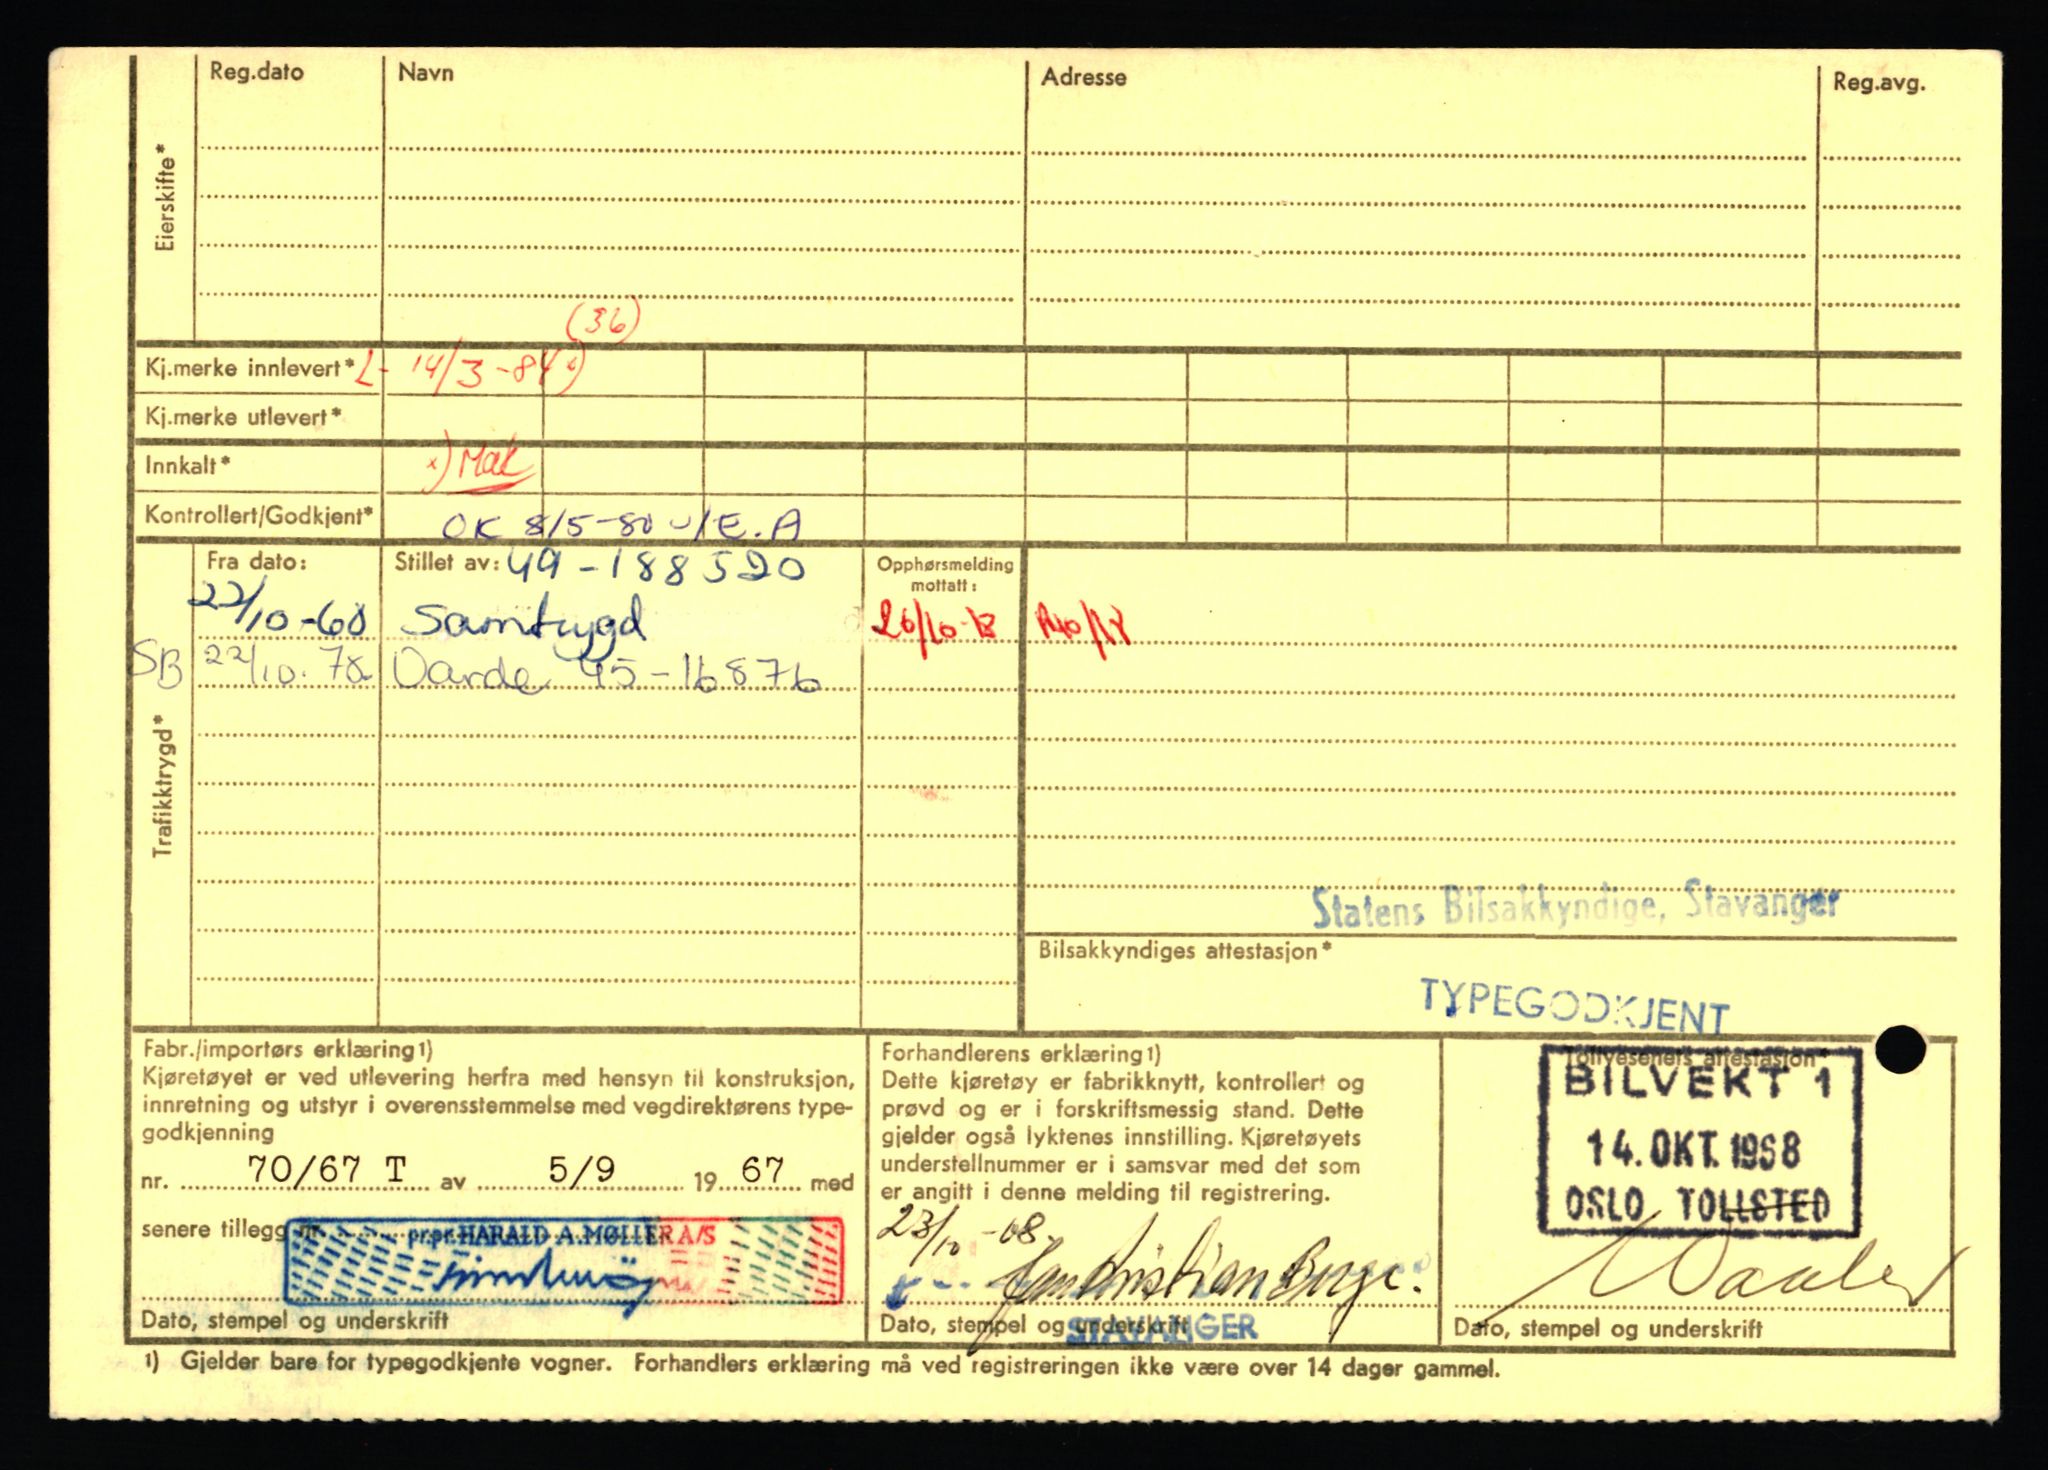 Reg.dato Navn Adresse Reg.avg.
Eierskifte*
(36)
Kj.merke innlevert* L- 14/3-84 x)
Kj.merke utlevert*
Innkalt* x) Mak
Kontrollert/Godkjent* OK 8/5-80 v/E.A
Fra dato: Stillet av: 49-188520 Opphørsmelding mottatt:
22/10-68 Samtrygd 26/10-78
SB 22/10.78 Varde 45-16876
Trafikktrygd*
Statens Bilsakkyndige, Stavanger
Bilsakkyndiges attestasjon*
TYPEGODKJENT
Fabr./importørs erklæring1)
Kjøretøyet er ved utlevering herfra med hensyn til konstruksjon,
innretning og utstyr i overensstemmelse med vegdirektørens type-
godkjenning
nr. 70/67 T av 5/9 19 67 med
senere tillegg nr.
pr.pr. HARALD A. MØLLER A/S
Dato, stempel og underskrift
Forhandlerens erklæring1)
Dette kjøretøy er fabrikknytt, kontrollert og
prøvd og er i forskriftsmessig stand. Dette
gjelder også lyktenes innstilling. Kjøretøyets
understellnummer er i samsvar med det som
er angitt i denne melding til registrering.
23/10-68.
Jan Kristian Berge.
Dato, stempel og underskrift
STAVANGER
Tollvesenets attestasjon*
BILVEKT 1
14. OKT. 1968
OSLO TOLLSTED
Dato, stempel og underskrift
1) Gjelder bare for typegodkjente vogner. Forhandlers erklæring må ved registreringen ikke være over 14 dager gammel.